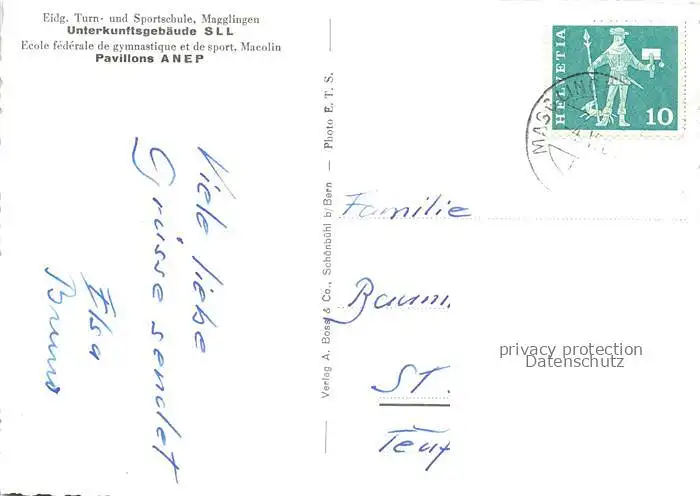 Eidg. Turn- und Sportschule, Magglingen
Unterkunftsgebäude SLL
Ecole fédérale de gymnastique et de sport, Macolin
Pavillons ANEP
Viele liebe
Grüsse sendet
Elsa
Bruno
Verlag A. Boss & Co., Schönbühl b/Bern — Photo E. T. S.
HELVETIA
10
Familie
Baum
ST.
Teuf
privacy protection
Datenschutz